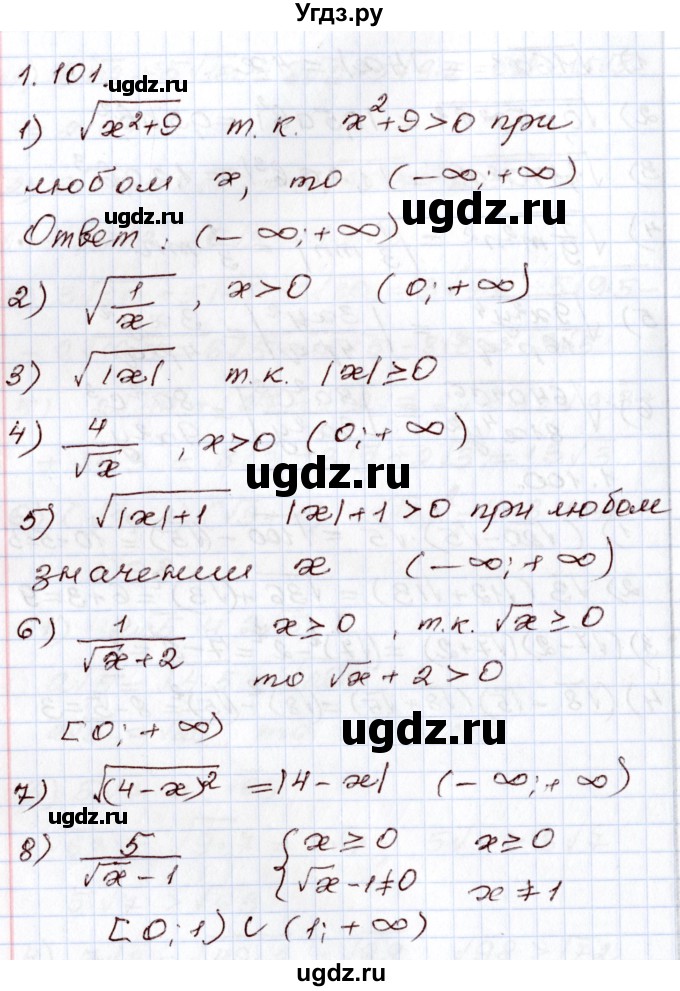 Угдз.ру
1.101.
ugdz.ru
1) √(x²+9) т.к. x²+9>0 при
ugdz.ru
любом x, то (-∞;+∞)
ugdz.ru
Ответ: (-∞;+∞)
ugdz.ru
2) √(1/x), x>0 (0;+∞)
3) √|x| т.к. |x|≥0
4) 4/√x, x>0 (0;+∞)
ugdz.ru
5) √(|x|+1) |x|+1>0 при любом
значении x (-∞;+∞)
6) 1/(√x+2) x≥0, т.к. √x≥0
ugdz.ru
то √x+2>0
[0;+∞)
ugdz.ru
7) √((4-x)²) =|4-x| (-∞;+∞)
ugdz.ru
8) 5/(√x-1) {x≥0 x≥0
√x-1≠0 x≠1
[0;1)∪(1;+∞)
ugdz.ru
ugdz.ru